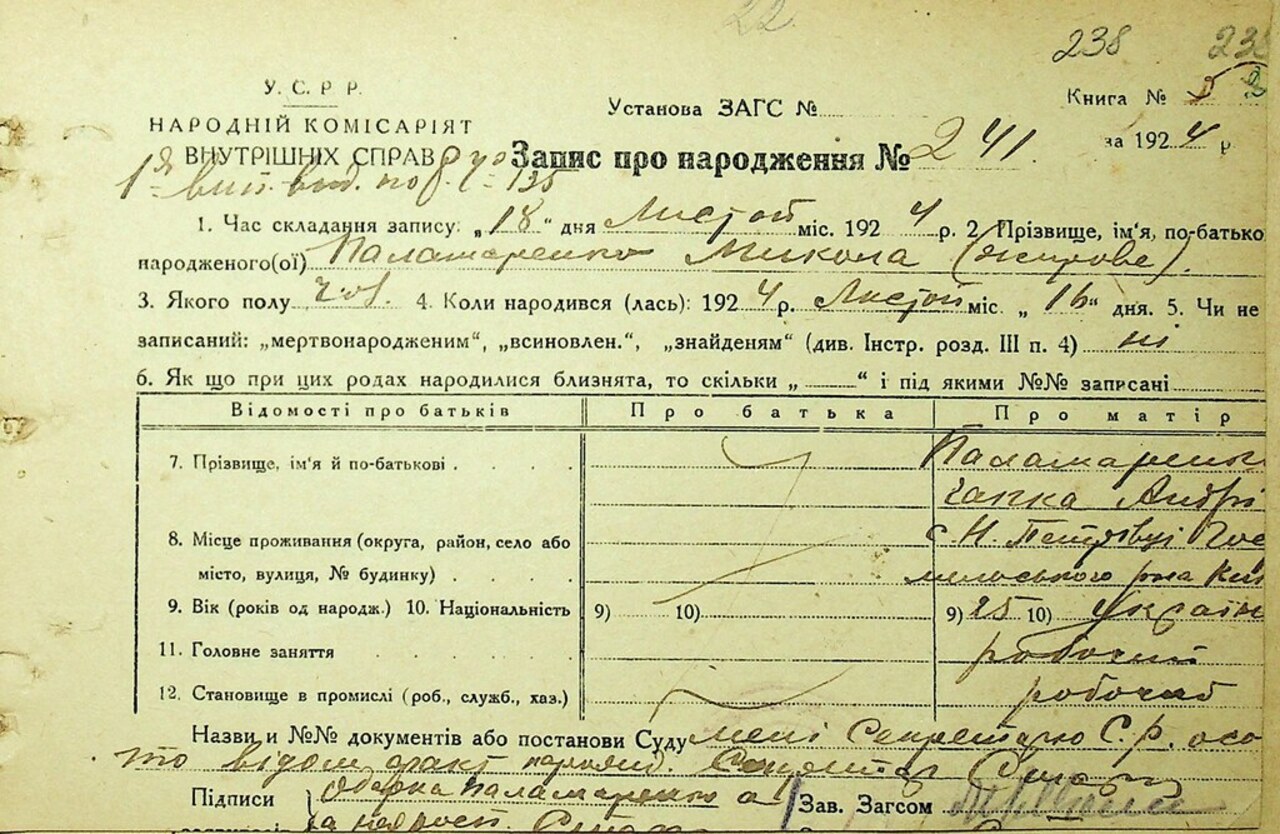 22
238 238
У. С. Р. Р.
НАРОДНІЙ КОМІСАРІЯТ
ВНУТРІШНІХ СПРАВ
Установа ЗАГС №
Книга № 5
за 1924 р.
Запис про народження № 241.
вип. вид. по 135
1. Час складання запису: „18" дня Листоп міс. 1924 р. 2 Прізвище, ім'я, по-батько
народженого(ої) Паламаренко Микола
3. Якого полу чол. 4. Коли народився (лась): 1924 р. Листоп міс. „16" дня. 5. Чи не
записаний: „мертвонародженим", „всиновлен.", „знайденям" (див. Інстр. розд. III п. 4) ні
6. Як що при цих родах народилися близнята, то скільки „ " і під якими №№ записані
Відомості про батьків Про батька Про матір
7. Прізвище, ім'я й по-батькові Паламаренк
Андрі
8. Місце проживання (округа, район, село або с. Н. Петрівці Гос
місто, вулиця, № будинку) рна Киї
9. Вік (років од народж.) 10. Національність 9) 10) 9) 25 10) україн
11. Головне заняття робочий
12. Становище в промислі (роб., служб., хаз.) робочий
Назви и №№ документів або постанови Суду мені Секретарю С. р. осо
то відом факт народж.
Підписи Одарка Паламаренко а Зав. Загсом